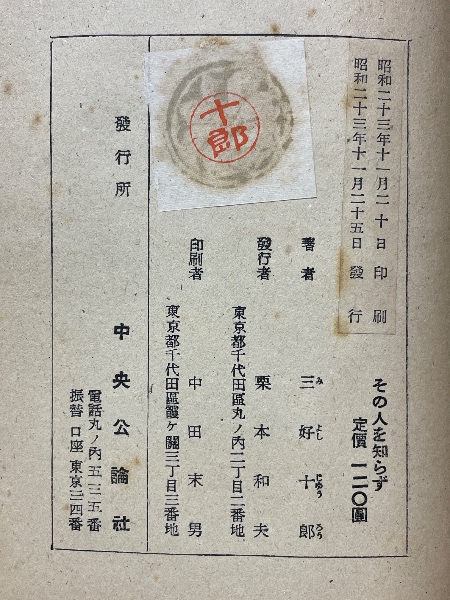 昭和二十三年十一月二十日 印刷
昭和二十三年十一月二十五日 發行
その人を知らず
定價 一二〇圓
著者 三好十郎
み よし じゅう ろう
發行者 栗本和夫
東京都千代田區丸ノ内二丁目二番地
印刷者 中田末男
東京都千代田區霞ヶ關三丁目三番地
十郎
發行所 中央公論社
電話丸ノ内五三五番
振替口座東京三四番